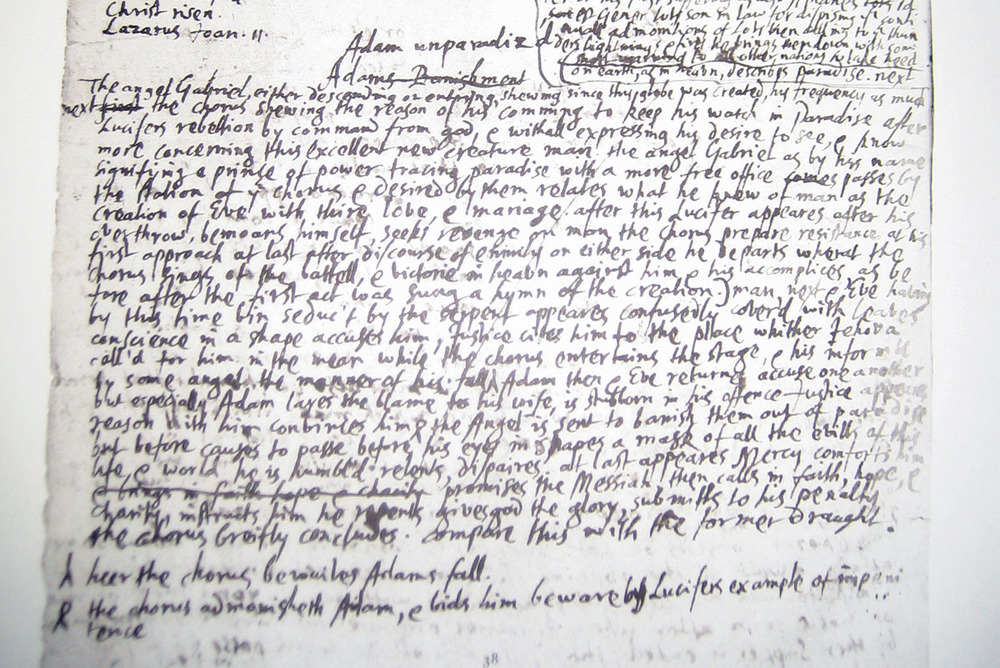 Christ risen.
Lazarus Joan. 11.
Adam unparadiz'd
Adams Banishment
Sodom
on earth, as in heavn, describes paradise. next
The angel Gabriel, either descending or entring, shewing since this globe was created, his frequency as much
next first the chorus shewing the reason of his comming to keep his watch in Paradise after
Lucifers rebellion by command from god, & withall expressing his desire to see, & know
more concerning this excellent new creature man. the angel Gabriel as by his name
signifying a prince of power tracing paradise with a more free office passes by
the station of ye chorus & desired by them relates what he knew of man as the
creation of Eve with thire love, & mariage. after this Lucifer appeares after his
overthrow, bemoans himself, seeks revenge on man the chorus prepare resistance at his
first approach at last after discourse of enmity on either side he departs wherat the
chorus sings of the battell, & victorie in heavn against him & his accomplices, as be
fore after the first act was sung a hymn of the creation) man next & Eve having
by this time bin seduc't by the serpent appeares confusedly cover'd with leaves
conscience in a shape accuses him, Justice cites him to the place whither Jehova
call'd for him in the mean while the chorus entertains the stage, & his inform'd
by some angel the manner of his fall Adam then & Eve returne accuse one another
but especially Adam layes the blame to his wife, is stubborn in his offence Justice appeares
reason with him convinces him the Angel is sent to banish them out of paradise
but before causes to passe before his eyes in shapes a mask of all the evills of this
life & world he is humbl'd relents, dispaires. at last appeares Mercy comforts him
& brings in faith hope & charity promises the Messiah, then calls in faith, hope, &
charity, instructs him he repents gives god the glory, submitts to his penalty
the chorus breifly concludes. compare this with the former draught.
heer the chorus bewailes Adams fall.
the chorus admonisheth Adam, & bids him beware by Lucifers example of impeni
tence
38